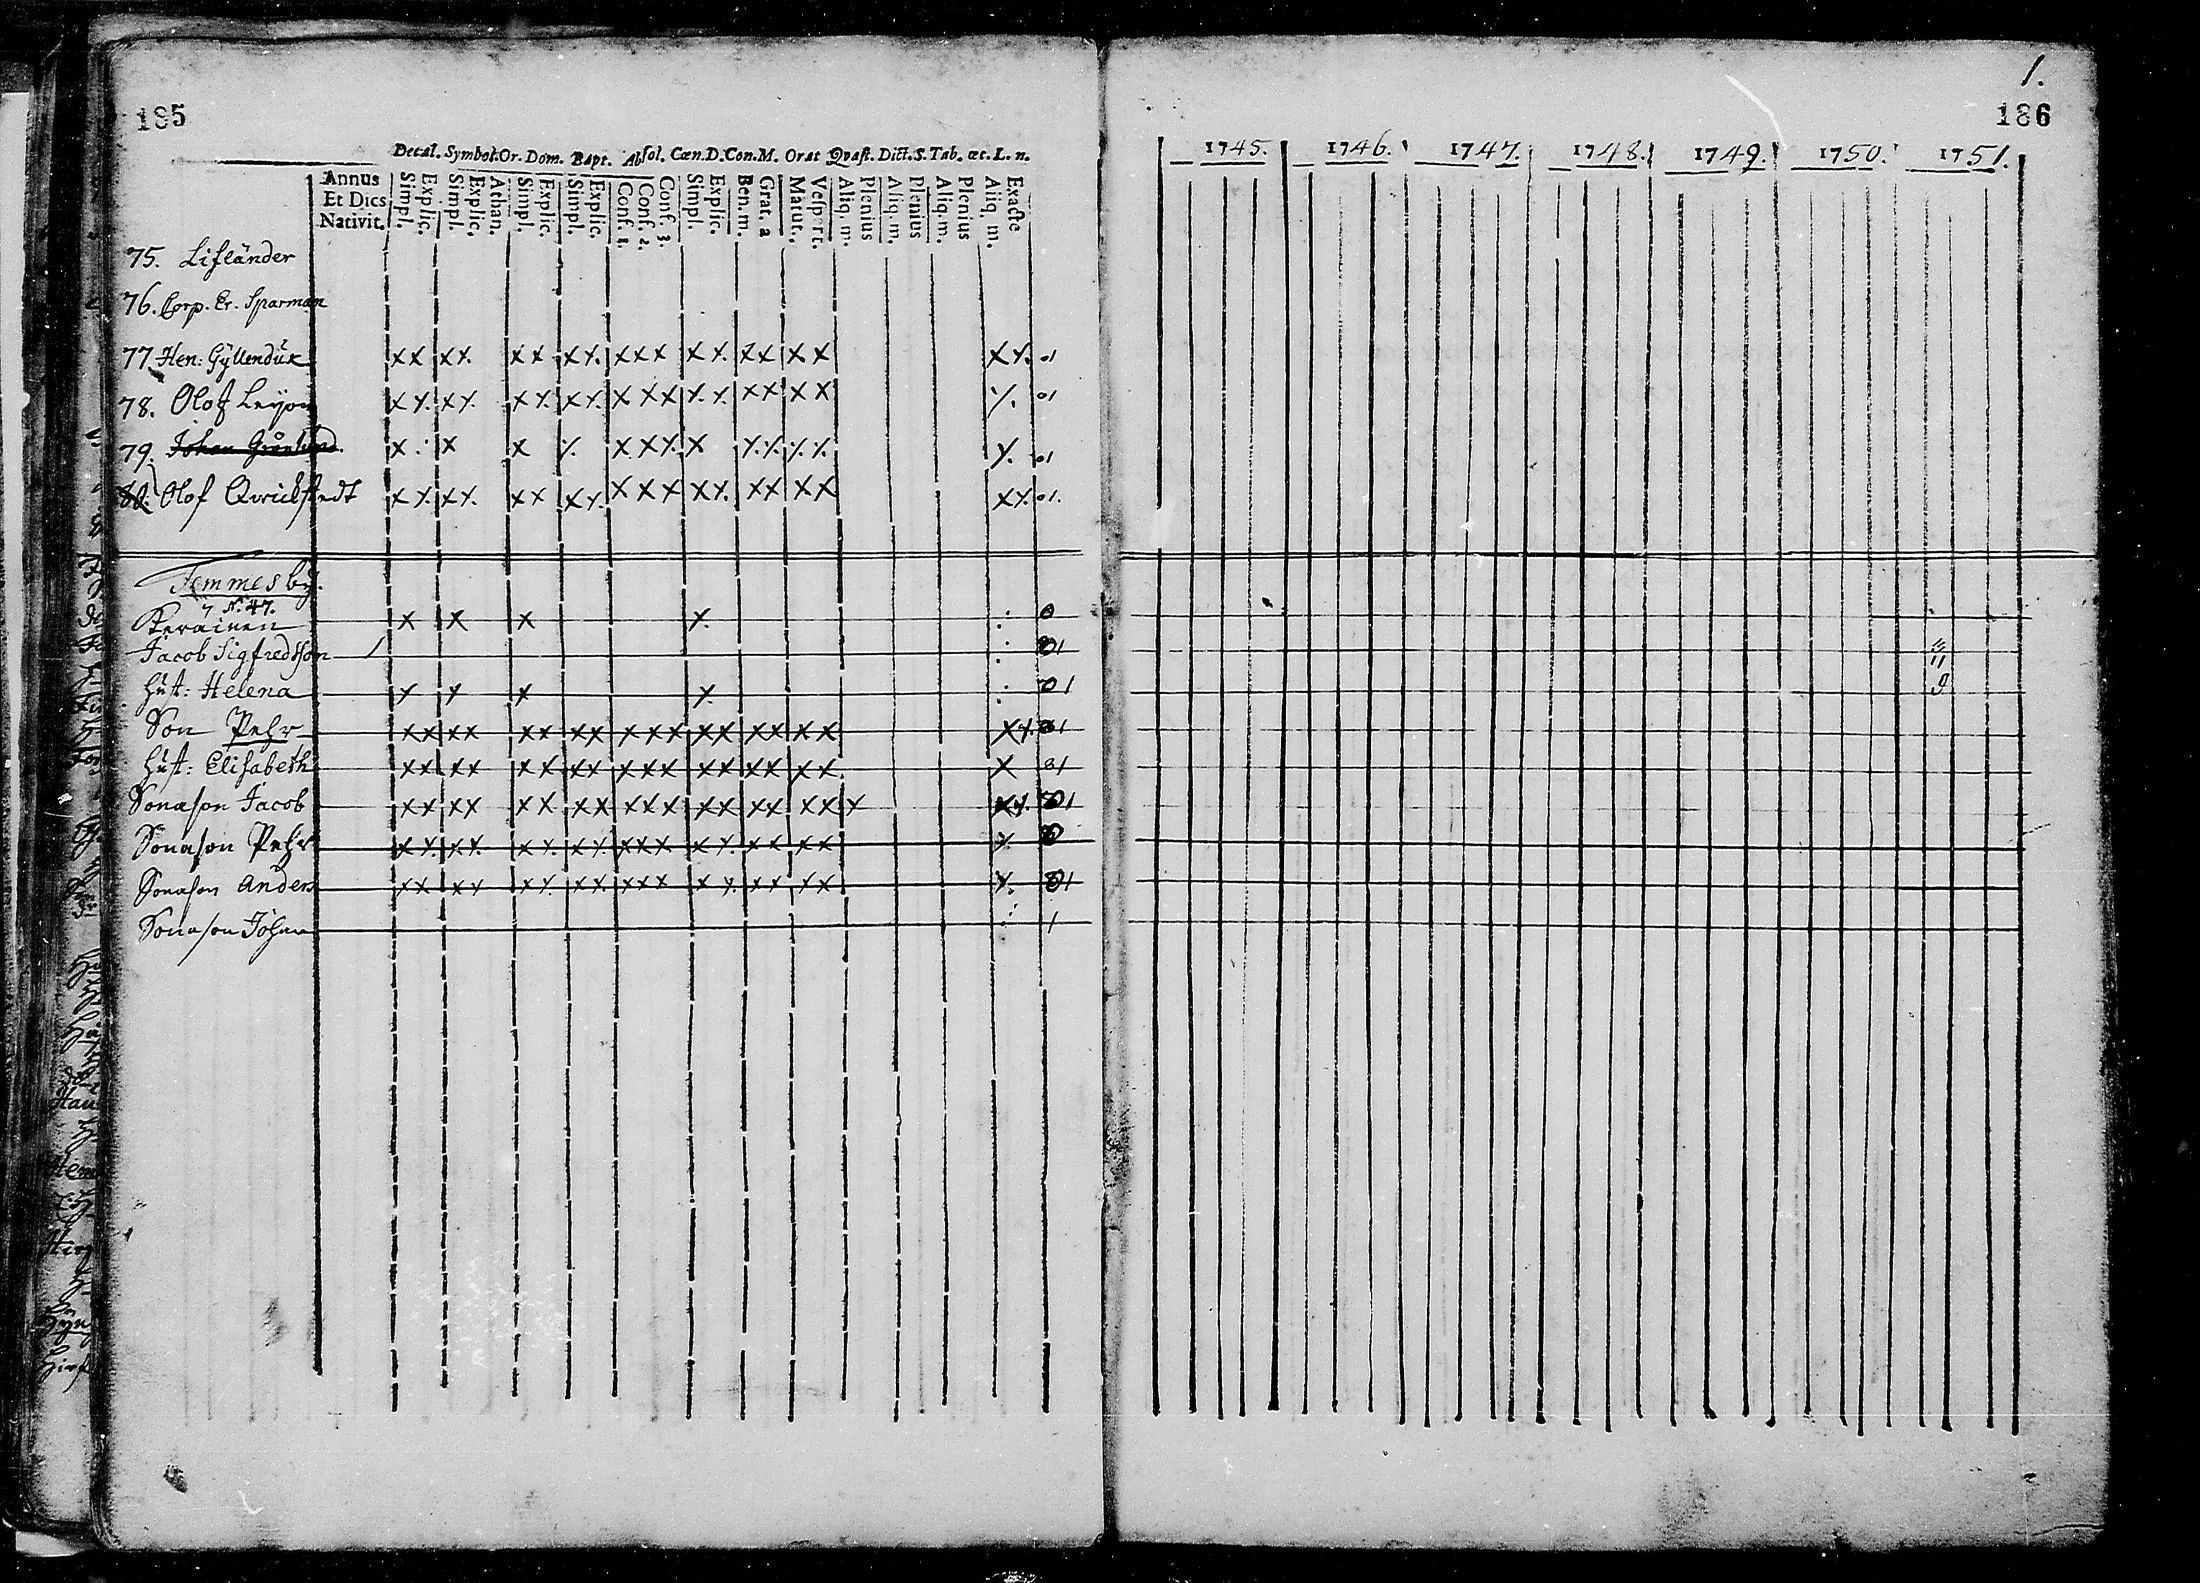 185
Decal. Symbol. Or. Dom. Bapt. Absol. Cœn. D. Con. M. Orat Qvæst. Dict. S. Tab. œc. L. n.
Annus Et Dies Nativit.
Simpl. Explic. Simpl. Explic. Athan. Simpl. Explic. Simpl. Explic. Conf. 1. Conf. 2. Conf. 3. Simpl. Explic. Ben. m. Grat. a Matut. Vespert. Aliq. m. Plenius Aliq. m. Plenius Aliq. m. Plenius Aliq. m. Exacte
75. Lifländer
76. Corp. Er. Sparman
77. Hen: Gyllendük x x x x x x x x x x x x x x x x x x x 01
78. Olof Leyon x x x x x x x x x x x x x x x x x x 01
79. Johan x x x x x x x x x x x x x 01
80. Olof Qvickstedt x x x x x x x x x x x x x x x x x x x 01.
Temmes by.
N: 47.
Kerainen x x x x 0
Jacob Sigfredsson 1 01
Hust: Helena x x x x 01
Son Pehr x x x x x x x x x x x x x x x x x x x 01
Hust: Elisabeth x x x x x x x x x x x x x x x x x x 01
Sonason Jacob x x x x x x x x x x x x x x x x x x x x 01
Sonason Pehr x x x x x x x x x x x x x x x x x x 0
Sonason Anders x x x x x x x x x x x x x x x x x x 01
Sonason Johan 1
1.
186
1745. 1746. 1747. 1748. 1749. 1750. 1751.
11
9